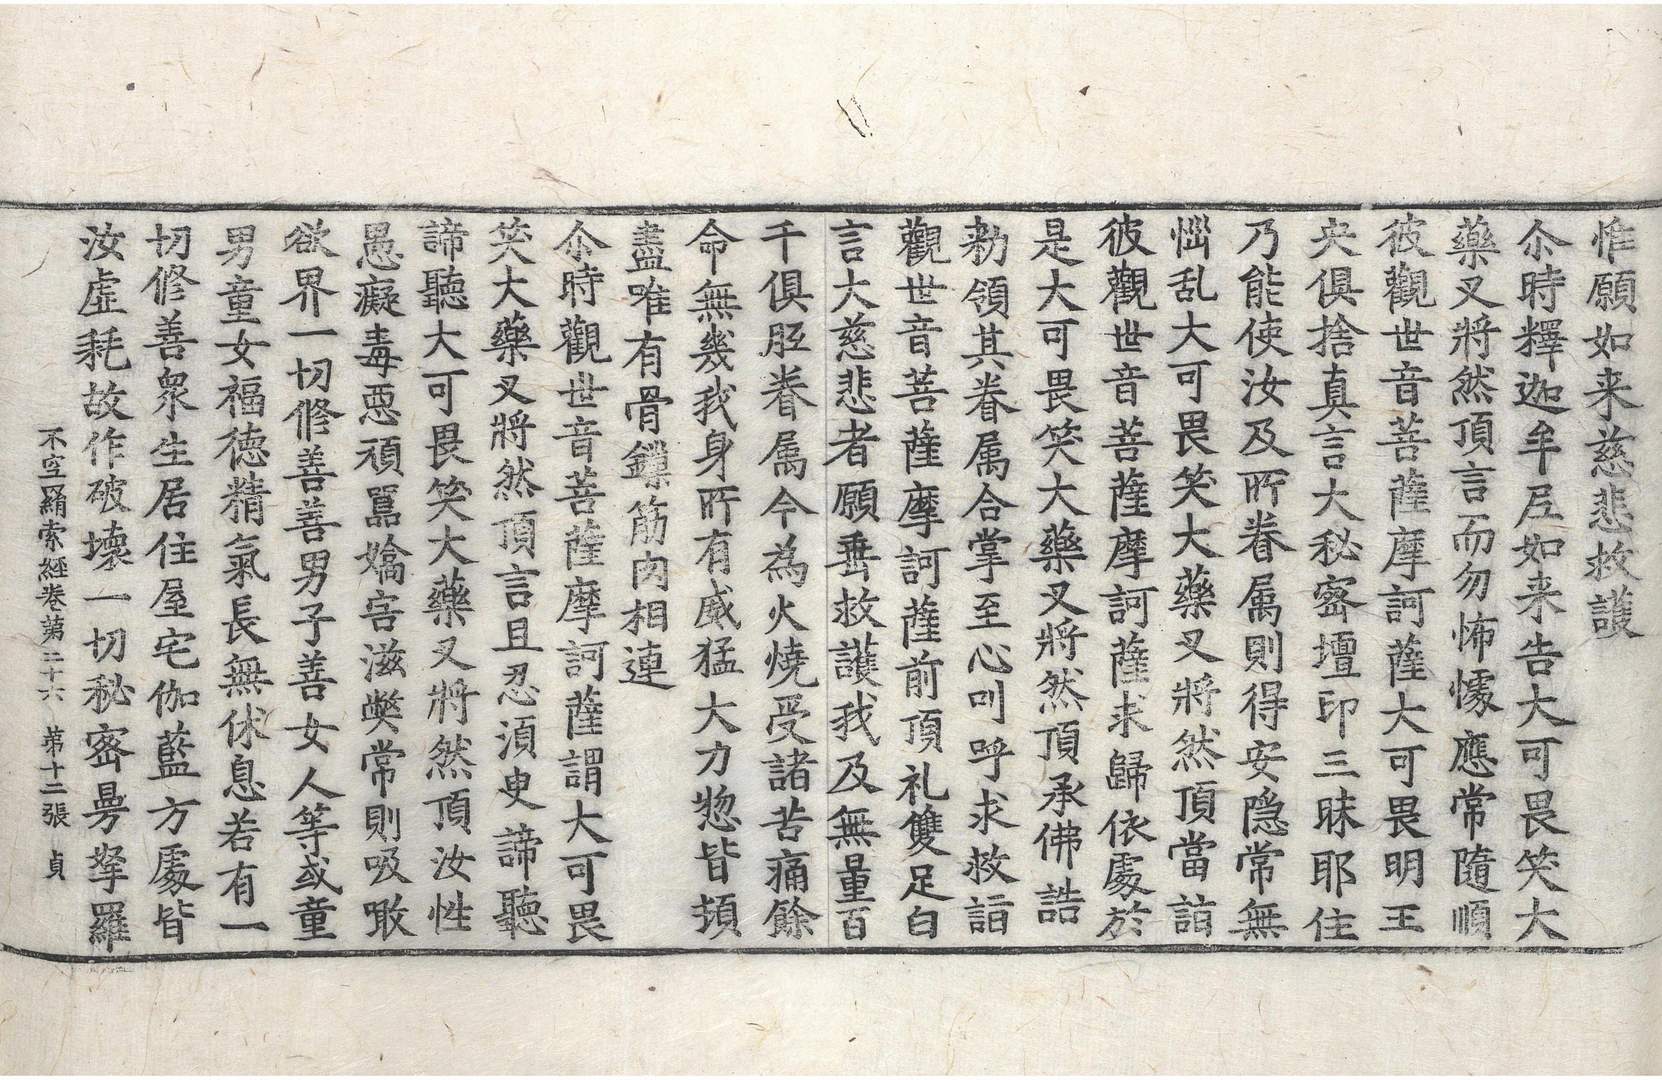 惟願如来慈悲救護
尒時釋迦牟𡰱如来告大可畏笑大
藥叉將然頂言而勿怖懅應常隨順
彼觀世音菩薩摩訶薩大可畏明王
央俱捨真言大秘密壇印三昧耶住
乃能使汝及所眷属則得安隐常無
惱乱大可畏笑大藥叉將然頂當詣
彼觀世音菩薩摩訶薩求歸依處於
是大可畏笑大藥叉將然頂承佛誥
勑領其眷属合掌至心叫呼求救詣
觀世音菩薩摩訶薩前頂礼雙足白
言大慈悲者願垂救護我及無量百
千俱胝眷属今為火燒受諸苦痛餘
命無幾我身所有威猛大力惣皆頓
盡唯有骨鏁筋肉相連
尒時觀世音菩薩摩訶薩謂大可畏
笑大藥叉將然頂言且忍湏臾諦聽
諦聽大可畏笑大藥叉將然頂汝性
愚癡毒悪頑嚚嬌害滋弊常則吸噉
欲界一切修善善男子善女人等或童
男童女福徳精氣長無休息若有一
切修善衆生居住屋宅伽藍方處皆
汝虛耗故作破壞一切秘密曼拏羅
不空羂索經卷第二十六 第十二張 貞